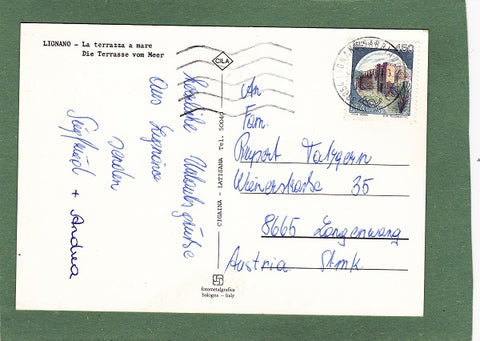 LIGNANO - La terrazza a mare
Die Terrasse vom Meer
Herzliche Urlaubsgrüße
aus Lignano
senden
Siegfried + Andrea
CILA
CIGAINA - LATISANA - Tel. 50049
fotometalgrafica
bologna - italy
450
An
Fam.
Rupert
Wienerstraße 35
8665 Langenwang
Austria Stmk.